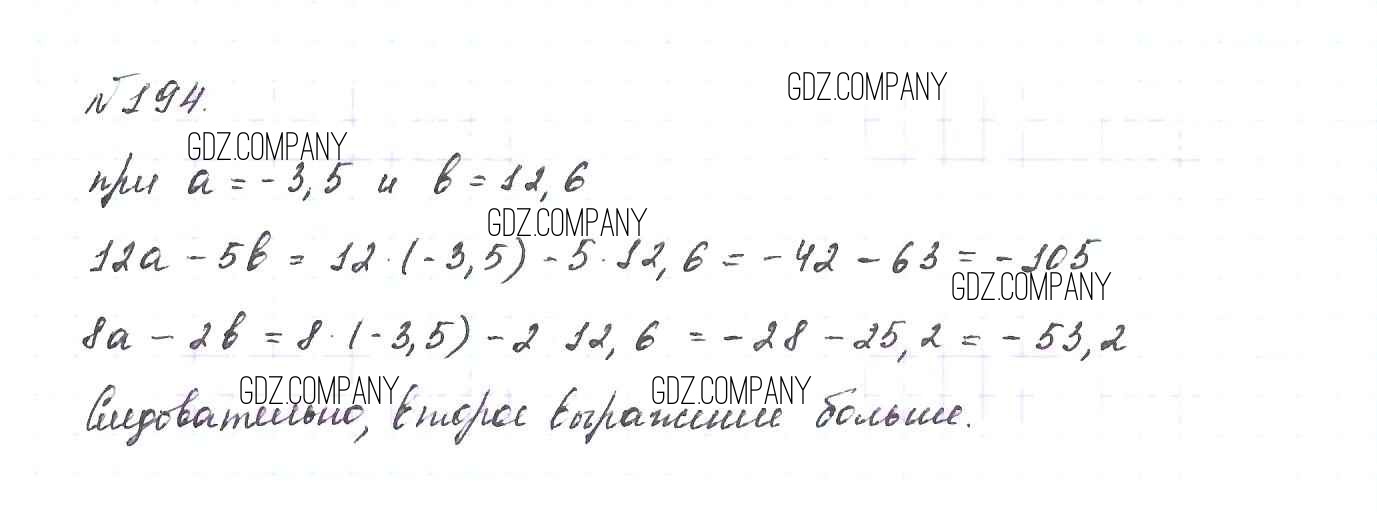 №194.
GDZ.COMPANY
GDZ.COMPANY
при a = -3,5 и b = 12,6
GDZ.COMPANY
12a - 5b = 12·(-3,5) - 5·12,6 = -42 - 63 = -105
GDZ.COMPANY
8a - 2b = 8·(-3,5) - 2 12,6 = -28 - 25,2 = -53,2
GDZ.COMPANY GDZ.COMPANY
Следовательно, второе выражение больше.